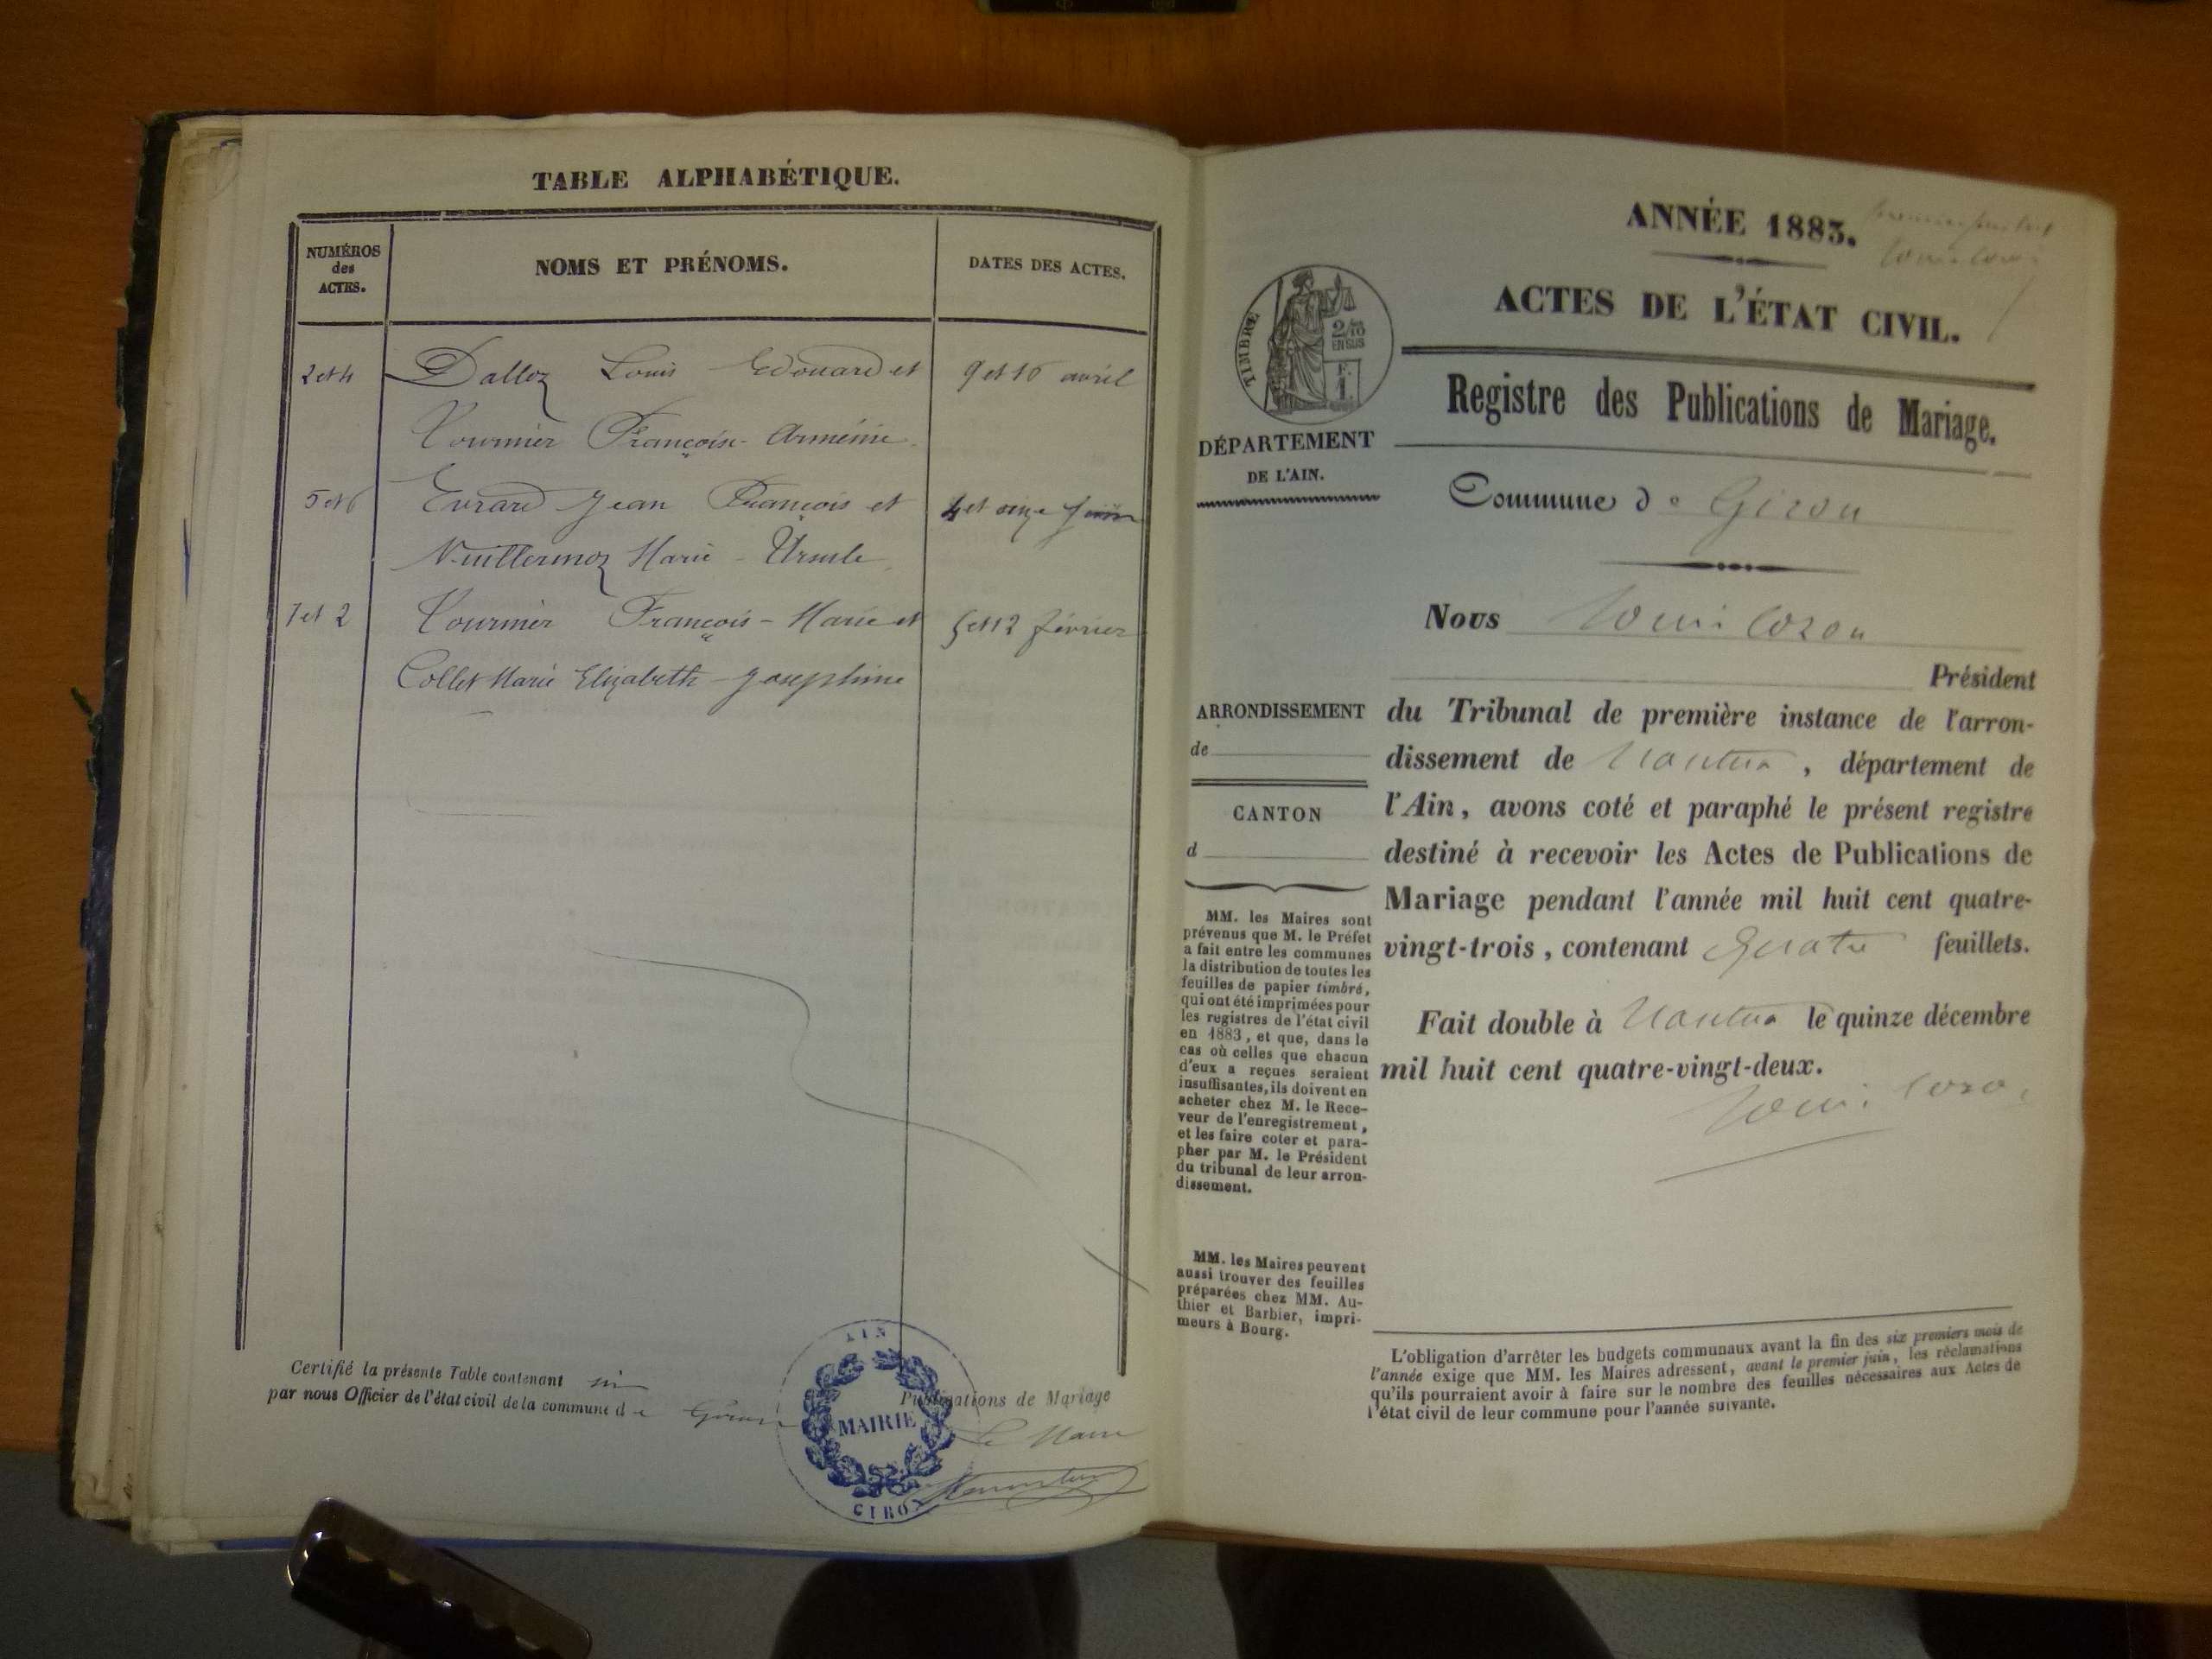 TABLE ALPHABÉTIQUE.
NUMÉROS
des
ACTES.
NOMS ET PRÉNOMS.
DATES DES ACTES.
2 et 4
Dalloz Louis Edouard et
9 et 16 avril
Tournier François Arménie
5 et 6
Evrard Jean François et
4 et onze juin
Vuillermoz Marie - Ursule
1 et 2
Tournier François - Marie et
5 et 12 février
Collet Marie Elizabeth - Josephine
Certifié la présente Table contenant six
Publications de Mariage
par nous Officier de l'état civil de la commune de Giron
Le Maire
AIN
MAIRIE
GIRON
ANNÉE 1883.
ACTES DE L'ÉTAT CIVIL.
TIMBRE
2/10
EN SUS
F.
1.
Registre des Publications de Mariage.
DÉPARTEMENT
DE L'AIN.
Commune de Giron
Nous
Président
ARRONDISSEMENT
de
CANTON
d
du Tribunal de première instance de l'arron-
dissement de Nantua, département de
l'Ain, avons coté et paraphé le présent registre
destiné à recevoir les Actes de Publications de
Mariage pendant l'année mil huit cent quatre-
vingt-trois, contenant Quatre feuillets.
Fait double à Nantua le quinze décembre
mil huit cent quatre-vingt-deux.
MM. les Maires sont
prévenus que M. le Préfet
a fait entre les communes
la distribution de toutes les
feuilles de papier timbré,
qui ont été imprimées pour
les registres de l'état civil
en 1883, et que, dans le
cas où celles que chacun
d'eux a reçues seraient
insuffisantes, ils doivent en
acheter chez M. le Rece-
veur de l'enregistrement,
et les faire coter et para-
pher par M. le Président
du tribunal de leur arron-
dissement.
MM. les Maires peuvent
aussi trouver des feuilles
préparées chez MM. Au-
thier et Barbier, impri-
meurs à Bourg.
L'obligation d'arrêter les budgets communaux avant la fin des six premiers mois de
l'année exige que MM. les Maires adressent, avant le premier juin, les réclamations
qu'ils pourraient avoir à faire sur le nombre des feuilles nécessaires aux Actes de
l'état civil de leur commune pour l'année suivante.